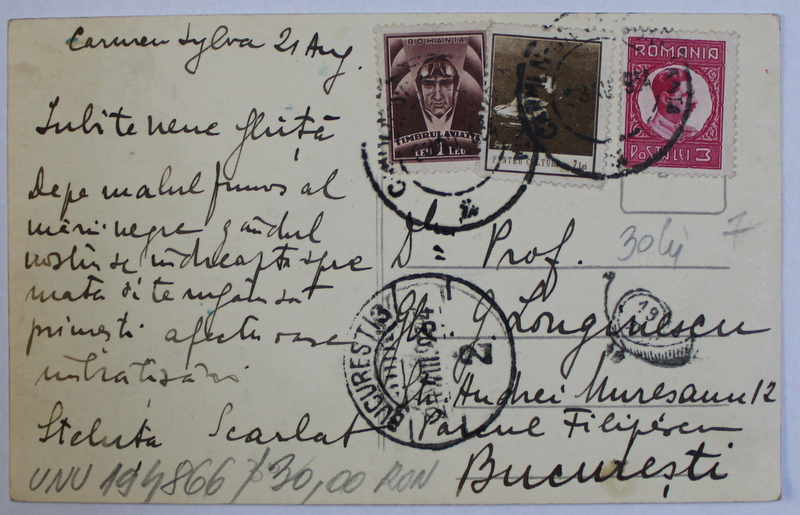 Carmen Sylva 21 Aug.
Iubite nene Ghiță
Depe malul frumos al
mării negre gândul
nostru se îndreaptă spre
mata și te rugăm să
primești afectuoase
îmbrățișări
Steluța Scarlat
ROMANIA
TIMBRUL AVIAȚIEI
1 LEU
PENTRU CULTURĂ 2 lei
ROMANIA
POSTA LEI 3
30 lei 7
Dlui Prof.
Gh. G. Longinescu
Str. Andrei Muresanu 12
Parcul Filipescu
București
BUCUREȘTI 3
VIII 934
2
19
UNU 194866 / 30,00 RON